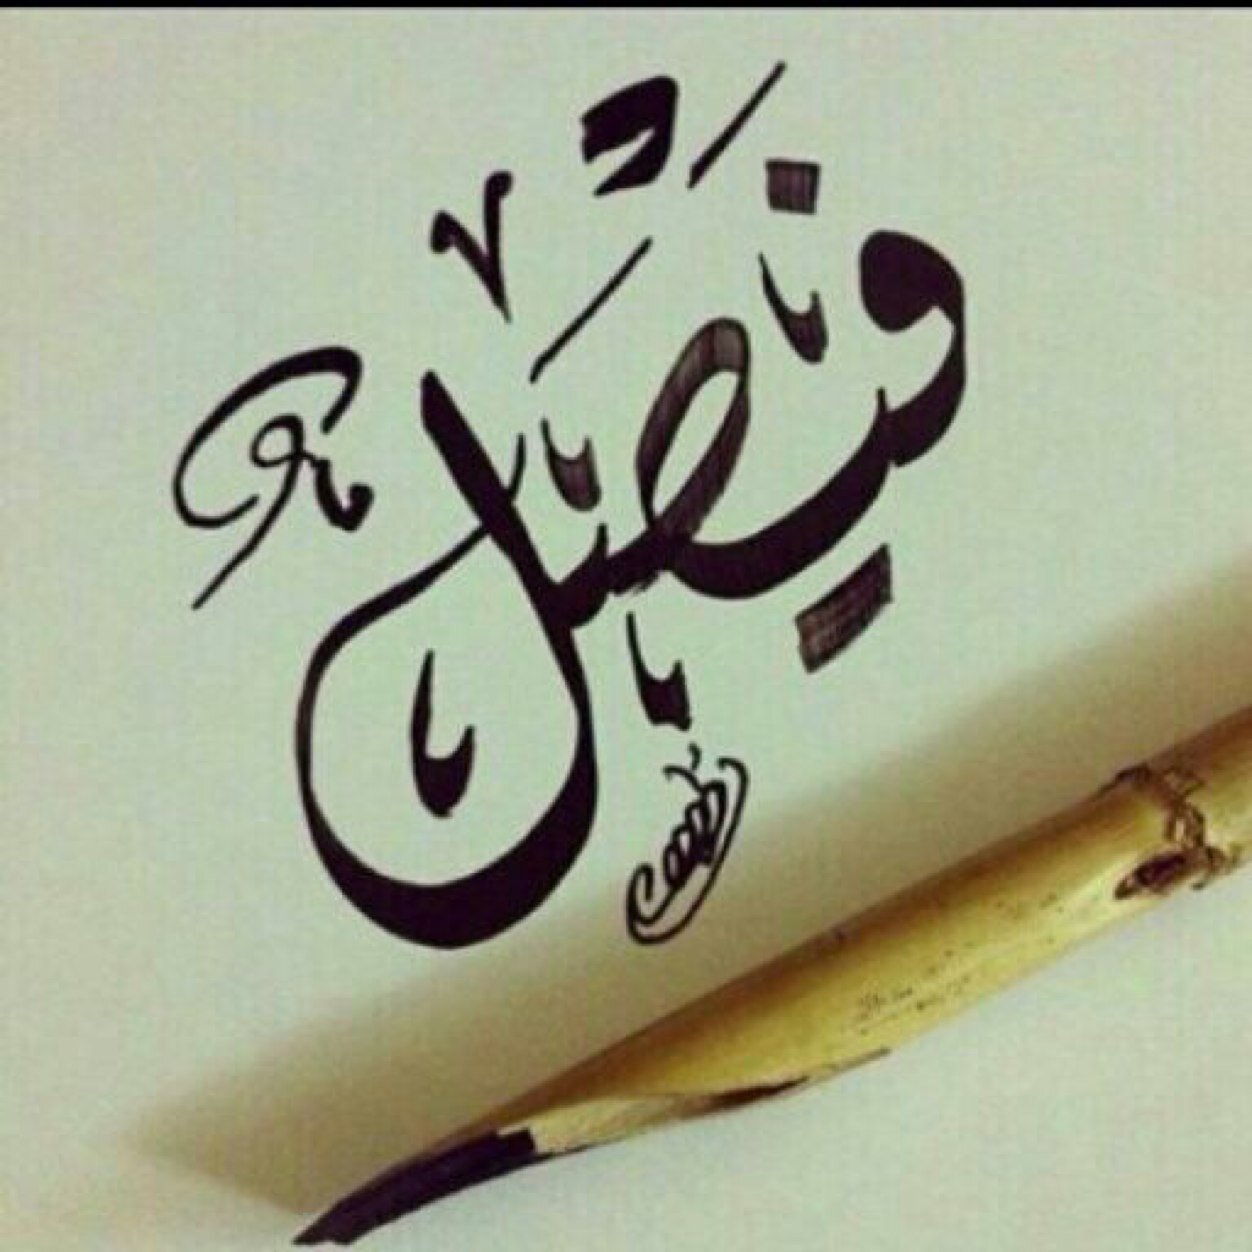 فيصل